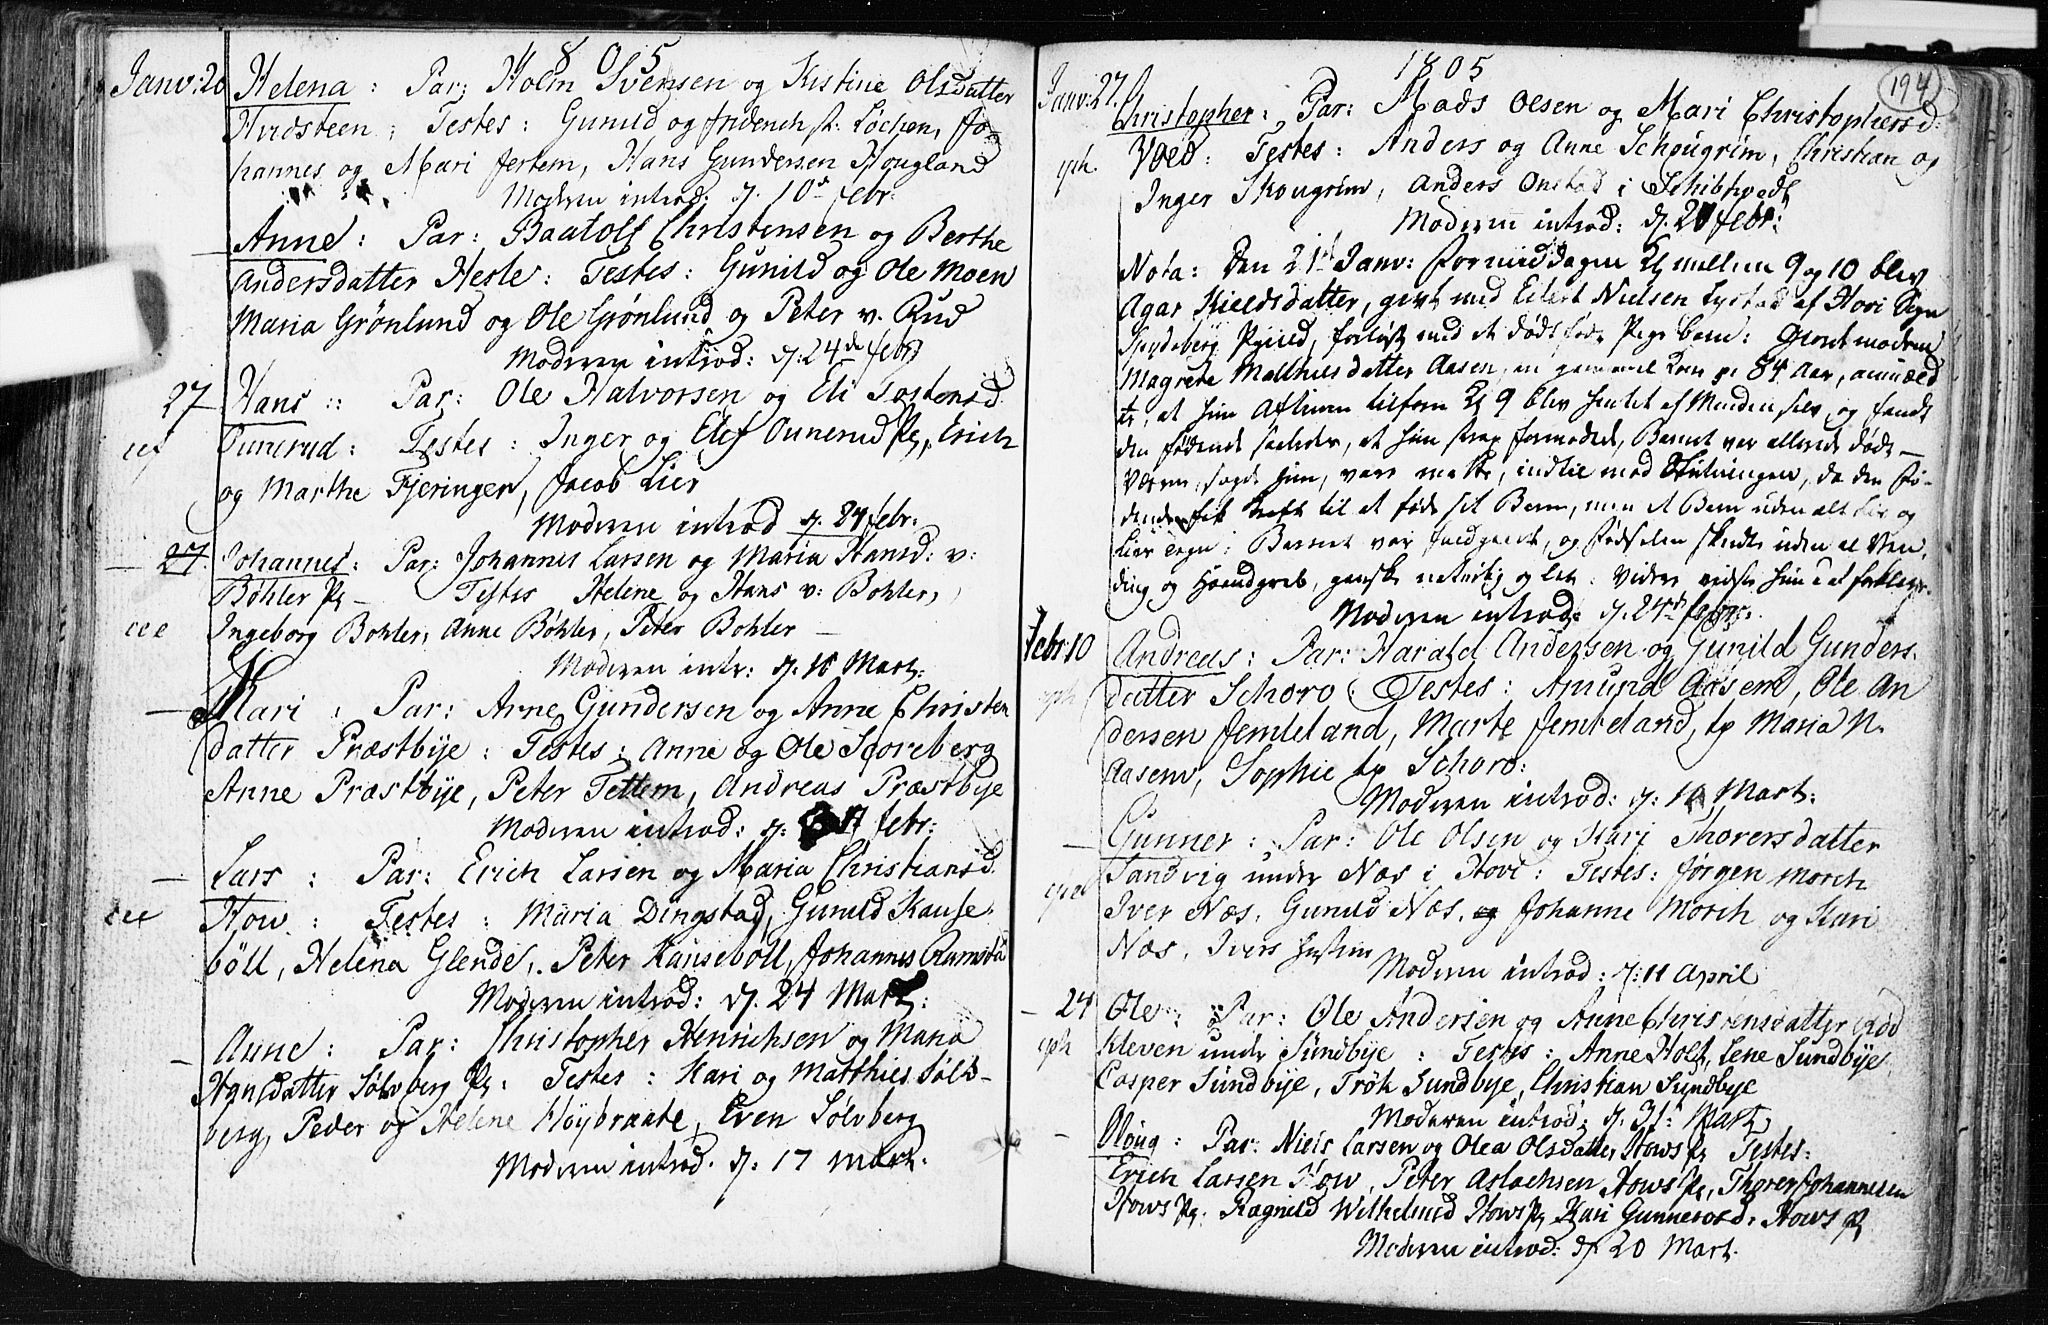 1805
Janv: 20 Helena: Par: Holm Svensen og Kistine Olsdatter
Hvidsteen; Testes: Gunild og friderich Løchen, Jo-
hannes og Mari Jertem, Hans Gundersen Hougland
Moderen introd: d. 10de febr:
Anne: Par: Baatolf Christensen og Berthe
Andersdatter Hesle: Testes: Gunild og Ole Moen
Maria Grönlund og Ole Grönlund og Peter v. Rud
Moderen introd: d: 24de febr
27 Hans :: Par: Ole Halvorsen og Eli Tostensd
eef Ounerud: Testes: Inger og Elef Ounerud Pg, Erich
og Marthe Fjeringen, Jacob Lier
Moderen introd d. 24 febr:
27. Johannes: Par: Johannes Larsen og Maria Hansd: v:
Bøhler Pg – Testes Helene og Hans v: Bohler,
eee Ingeborg Bohler, Anne Bøhler, Peter Bohler –
Moderen intr: d. 10 Mart:
Mari: Par: Arne Gundersen og Anne Christen
datter Præstbye: Testes: Anne og Ole Scoreberg
Anne Præstbye, Peter Tettem, Andreas Præstbye
Moderen introd: d: febr:
Lars: Par: Erich Larsen og Maria Christiansd.
eee How: Testes: Maria Dingstad, Gunild Kause
böll, Helena Glende, Peter Kauseböll, Johannes Ramstad
Moderen introd: d. 24 Mart:
Anne: Par: Christopher Henrichsen og Maria
Hansdatter Sølvberg Pg: Testes: Kari og Matthies Sølv-
berg, Peder og Helene Höybraate, Even Sölvberg
Moderen introd. d: 17 Mart:
1805
194
Janv: 27. Christopher: Par: Mads Olsen og Mari Christophersd:
gph. Voed: Testes: Anders og Anne Schougrim, Christian og
Inger Skougrim, Anders Onstad i Schibtvedt
Moderen introd: d. 20 febr:
Nota: Den 21de Janv: Formiddagen Kl mellem 9 og 10 blev
Agar Kieldsdatter, givt med Eilert Nielsen Lystad af Hovi Sogn
forløst med et dødfød Pige barn: Giordemodren
Magrete Matthiesdatter Aasen, en gammel Kone pr 84 Aar, anmæld
te, at hun Aftenen tilforn Kl 9 blev hentet af Manden selv og fandt
den fødende saaledes, at hun strax formodede, Barnet var allerede dødt –
Veerne, sagde hun, vare matte, indtil mod Slutningen, da den fø-
dende fik Kraft til at føde sit Barn, men et Barn uden alt Liv og
Livs Tegn: Barnet var fuldgaaet, og fødselen skeedte uden al Ven,
ding og Haandgreb, ganske naturlig og let. Videre vidste hun ei at forklare.
Moderen introd: d. 24de febr:
Febr: 10 Andreas: Par: Harald Andersen og Gunild Gunders
gph datter Schoro: Testes: Amund Aasen, Ole An
dersen Jemteland, Marte Jemteland, tp Maria N.
Aasen, Sophie tp Schoro:
Moderen introd: d: 10 Mart:
Gunner: Par: Ole Olsen og Kari Thorersdatter
Sandvig under Næs i Hovi: Testes: Jørgen Morch
Iver Næs, Gunild Næs, og Johanne Morch og Kari
Næs, Ivers Hustru
Moderen introd: d: 11 April
24 Ole: Par: Ole Andersen og Anne Christensdatter
gph Kleven under Sundbye: Testes: Anne Holt, Lene Sundbye
Casper Sundbye, Trök Sundbye, Christian Sundbye
Moderen introd: d. 31: Mart
Oloug: Par: Niels Larsen og Olea Olsdatter Hows Pg Testes:
Erich Larsen How, Peter Aslachsen Hows Pg, Thorer Johannesen
Hows Pg: Ragnild Wilhelmsd Hows Pg Kari Gunnersd: Hows Pg
Moderen introd: d 20 Mart.